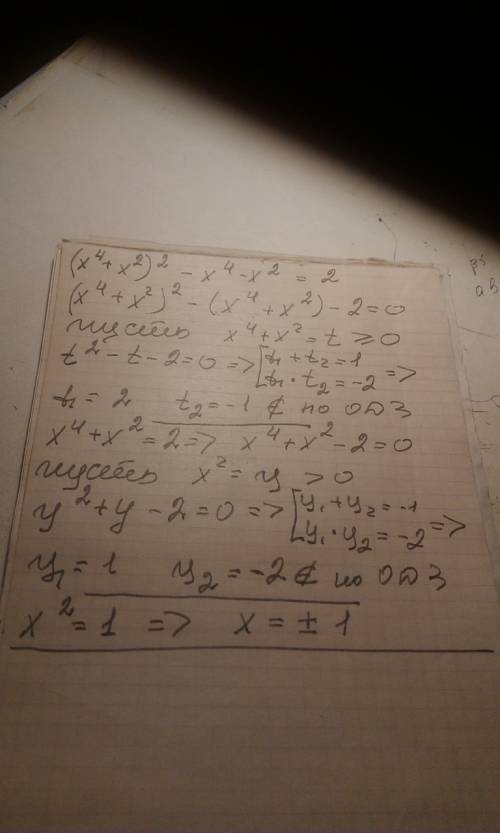 (x⁴+x²)² - x⁴ - x² = 2
(x⁴+x²)² - (x⁴+x²) - 2 = 0
пусть x⁴+x² = t ≥ 0
t² - t - 2 = 0 => [t₁+t₂=1 t₁·t₂=-2 =>
t₁ = 2 t₂ = -1 ∉ по ОДЗ
x⁴+x² = 2 => x⁴+x²-2=0
пусть x² = y > 0
y²+y-2=0 => [y₁+y₂=-1 y₁·y₂=-2 =>
y₁ = 1 y₂ = -2 ∉ по ОДЗ
x² = 1 => x = ± 1